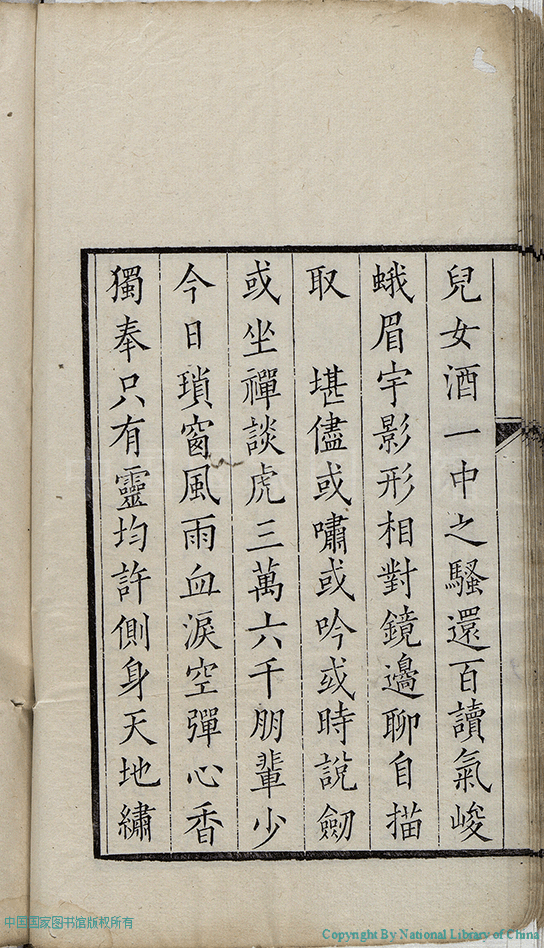 兒女酒一中之騷還百讀氣峻
蛾眉宇影形相對鏡邊聊自描
取　堪儘或嘯或吟或時說劒
或坐禪談虎三萬六千朋輩少
今日瑣窗風雨血淚空彈心香
獨奉只有靈均許側身天地繡
中国国家图书馆版权所有
Copyright By National Library of China